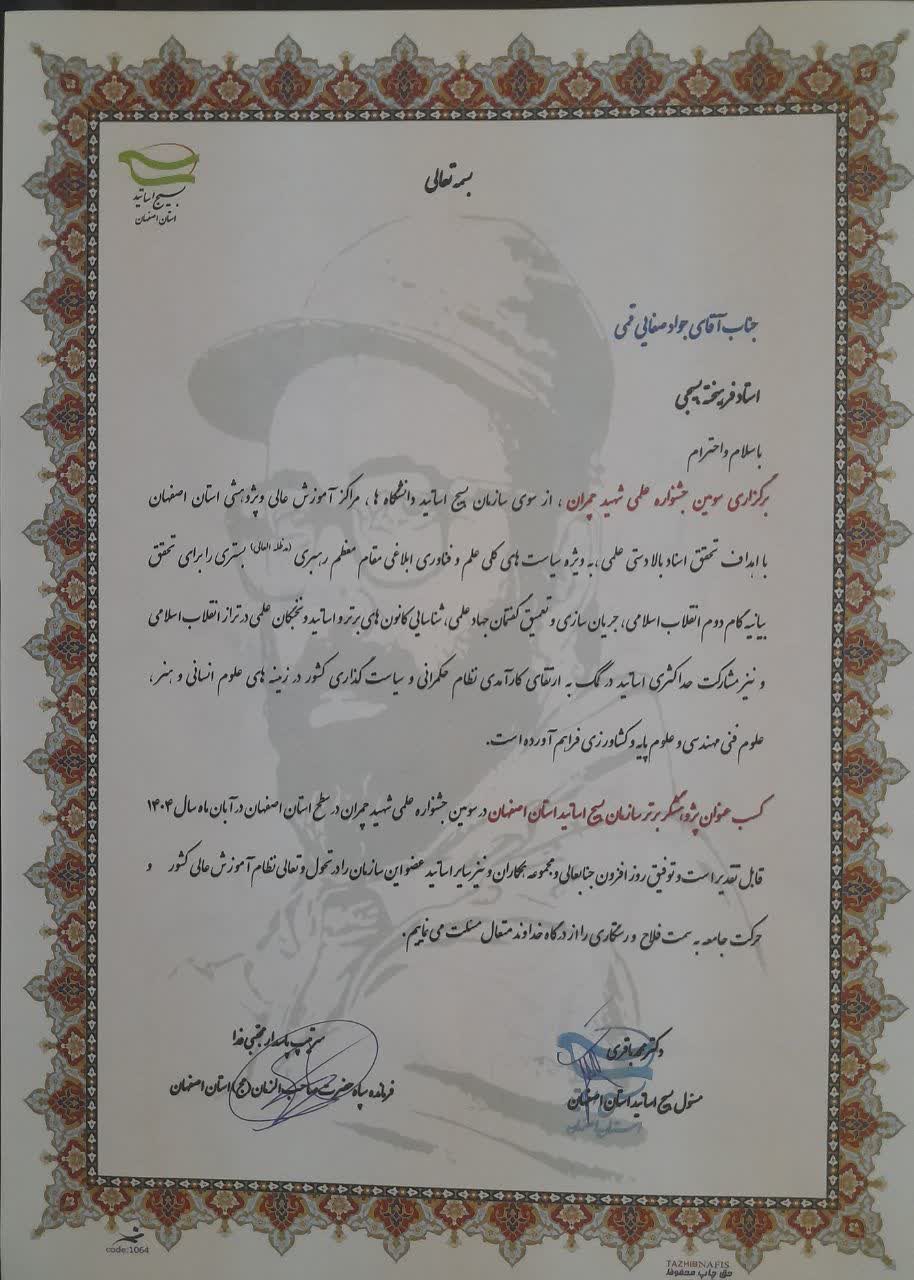 بسمه تعالی
بسیج اساتید
استان اصفهان
جناب آقای جواد صفایی قمی
استاد فرهیخته بسیجی
با سلام و احترام
برگزاری سومین جشنواره علمی شهید چمران ، از سوی سازمان بسیج اساتید دانشگاه ها ، مراکز آموزش عالی و پژوهشی استان اصفهان
با اهداف تحقق اسناد بالا دستی علمی ،به ویژه سیاست های کلی علم و فناوری ابلاغی مقام معظم رهبری (مدظله العالی) بستری را برای تحقق
بیانیه گام دوم انقلاب اسلامی، جریان سازی و تعمیق گفتمان جهاد علمی، شناسایی کانون های برتر و اساتید و نخبگان علمی در تراز انقلاب اسلامی
و نیز مشارکت حداکثری اساتید در کمک به ارتقای کارآمدی نظام حکمرانی و سیاست گذاری کشور در زمینه های علوم انسانی و هنر،
علوم فنی مهندسی و علوم پایه و کشاورزی فراهم آورده است.
کسب عنوان پژوهشگر برتر سازمان بسیج اساتید استان اصفهان در سومین جشنواره علمی شهید چمران در سطح استان اصفهان در آبان ماه سال ۱۴۰۴
قابل تقدیر است و توفیق روز افزون جنابعالی و مجموعه همکاران و نیز سایر اساتید عضو این سازمان را در تحول و تعالی نظام آموزش عالی کشور و
حرکت جامعه به سمت فلاح و رستگاری را از درگاه خداوند متعال مسئلت می نماییم.
دکتر محمد باقری
مسئول بسیج اساتید استان اصفهان
استان اصفهان
سرتیپ پاسدار مجتبی فدا
فرمانده سپاه حضرت صاحب الزمان (عج) استان اصفهان
code:1064
TAZHIBNAFIS
حق چاپ محفوظ